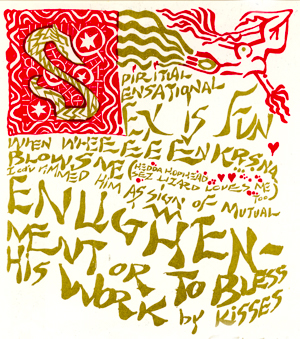 S
PIRITUAL
ENSATIONAL
EX IS FUN
WHEN WHEE E E EN KRSNA
BLOWS ME (HEDDA HOPHEAD
SEZ LIZARD LOVES ME
TOO
I HIM AS SIGN OF MUTUAL
ENLIGHEN-
MENT OR TO BLESS
HIS WORK by KISSES